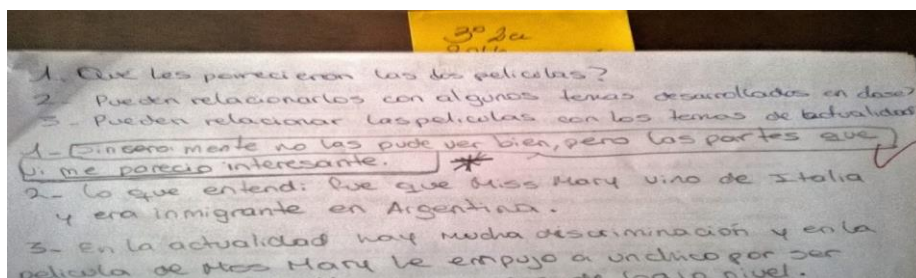 3º 2a
1. Que les parecieron las dos peliculas?
2- Pueden relacionarlos con algunos temas desarrollados en clase?
3- Pueden relacionar las peliculas con los temas de la actualidad
1- Sinceramente no las pude ver bien, pero las partes que
vi me parecio interesante.
2- Lo que entendi fue que Miss Mary vino de Italia
y era inmigrante en Argentina.
3- En la actualidad hay mucha discriminación y en la
pelicula de Miss Mary le empujo a un chico por ser
bajo nivel.